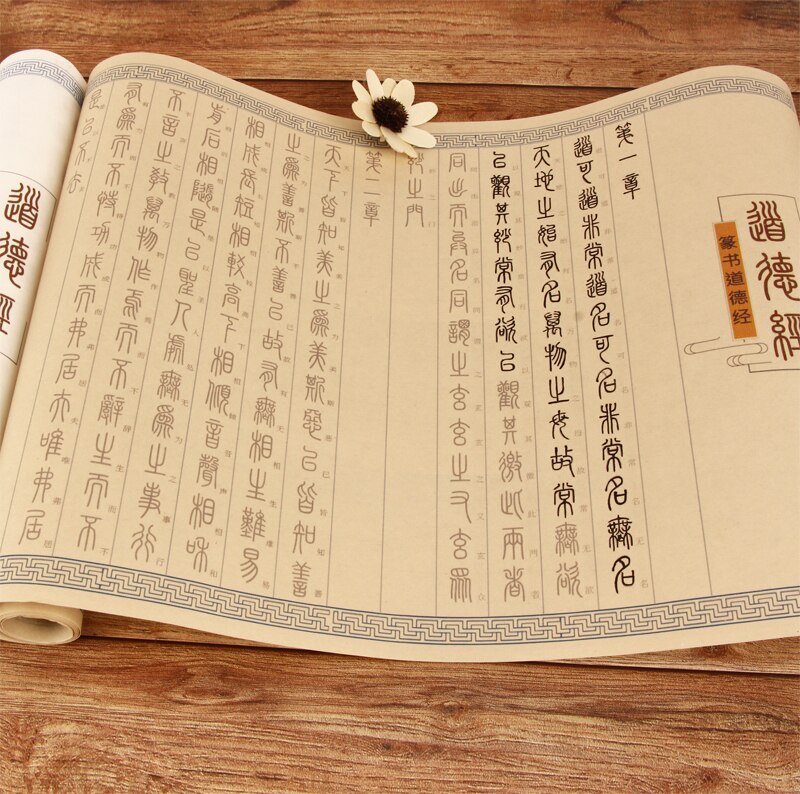 道德經
篆书道德经
第一章
道可道非常道名可名非常名無名
天地之始有名萬物之母故常無欲
以觀其妙常有欲以觀其徼此兩者
同出而異名同謂之玄玄之又玄眾
妙之門
第二章
天下皆知美之為美斯惡已皆知善
之為善斯不善已故有無相生難易
相成長短相較高下相傾音聲相和
前后相隨是以聖人處無為之事行
不言之教萬物作焉而不辭生而不
有為而不恃功成而弗居夫唯弗居
是以不去
道德經